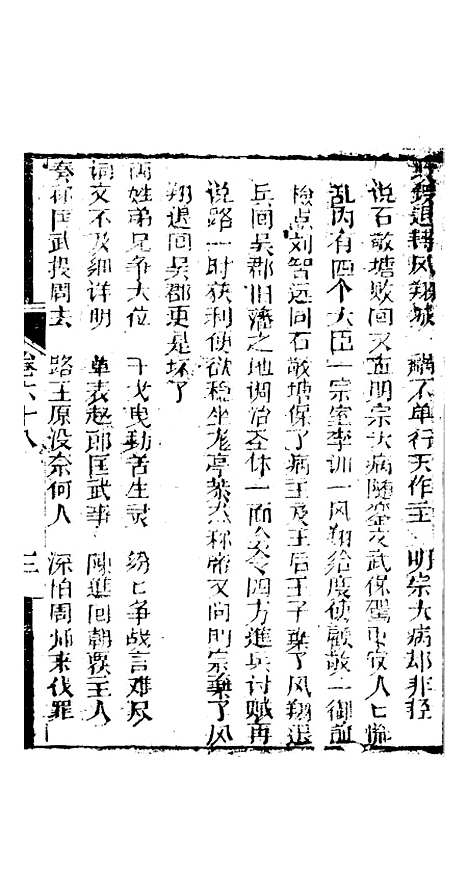 退歸风翔城　祸不单行天作主　明宗大病却非轻
说石敬塘败回又值明宗大病随銮文武保驾人匕慌
乱内有四个大臣一宗室李训一凤翔给度使颜敬一御前
检点刘智远同石敬塘保了病王及王后王子棄了风翔退
兵回吴郡旧藩之地调治圣休一面令四方進兵讨贼再
说路一时获利便欲稳坐龙亭恭然称帝又闻明宗棄了风
翔退回吴郡更是坏了
两姓弟兄争大位　干戈曳動苦生灵　纷匕争战言难尽
词文不及細详明　单表赵郎匡武事　陳進回朝覆主人
奏称匡武投周去　路王原没奈何人　深怕周师来伐罪
卷六十八　三